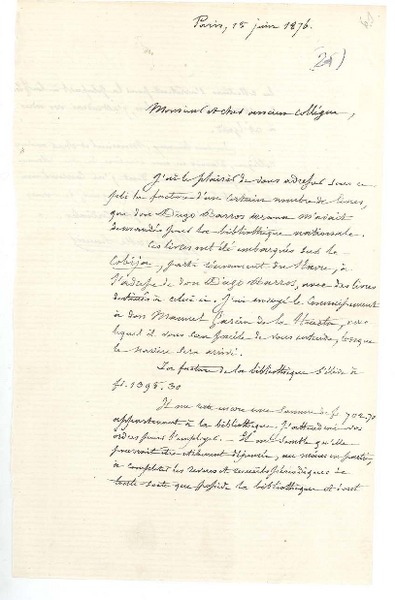 Paris, 15 juin 1876.
(25)
Monsieur et cher ancien collègue,
J'ai le plaisir de vous adresser sous ce
pli la facture d'un certain nombre de livres,
que don Diego Barros Arana m'avait
demandés pour la bibliothèque nationale.
Ces livres ont été embarqués sur le
Cobija, parti récemment du Havre, à
l'adresse de don Diego Barros, avec des livres
destinés à celui-ci. J'ai envoyé le connaissement
à don Manuel Garcia de la Huerta, avec
lequel il vous sera facile de vous entendre, lorsque
le navire sera arrivé.
La facture de la bibliothèque s'élève à
fr. 1095.30
Il me reste encore une somme de fr 702.70
appartenant à la bibliothèque. J'attendrai vos
ordres pour l'employer. — Il me semble qu'elle
pourrait être utilement dépensée, au moins en partie,
à compléter les revues et recueils périodiques de
toute sorte que possède la bibliothèque et dont